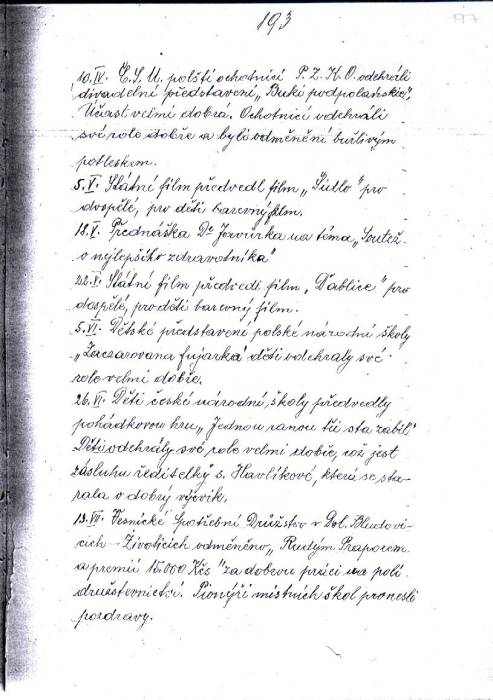 193
197
10.IV. Č.S.U. polští ochotníci P.Z.K.O. odehráli
divadelní představení „Buki podpolańskie".
Účast velmi dobrá. Ochotníci odehráli
své role dobře a byli odměněni bužlivým
potleskem.
5.V. Státní film předvedl film „Šidlo" pro
dospělé, pro děti barevný film.
18.V. Přednáška Dr na téma „Soutěž
o nejlepšího zdravotníka"
22.V. Státní film předvedl film „Ďáblice" pro
dospělé, pro děti barevný film.
5.VI. Dětské představení polské národní školy
„Zaczarovana fujarka" děti odehrály své
role velmi dobře.
26.VI. Děti české národní školy předvedly
pohádkovou hru „Jednou ranou tři sta zabil"
Děti odehrály své role velmi dobře, což jest
zásluhu ředitelky s. Havlíkové, která se sta-
rala o dobrý výcvik.
13.VII. Vesnické Spotřební Družstvo v Dol. Bludovi-
cích – Životicích odměněno „Rudým Praporem
a premií 15.000 Kčs" za dobrou práci na poli
družstevnictví. Pionýři místních škol pronesli
pozdravy.